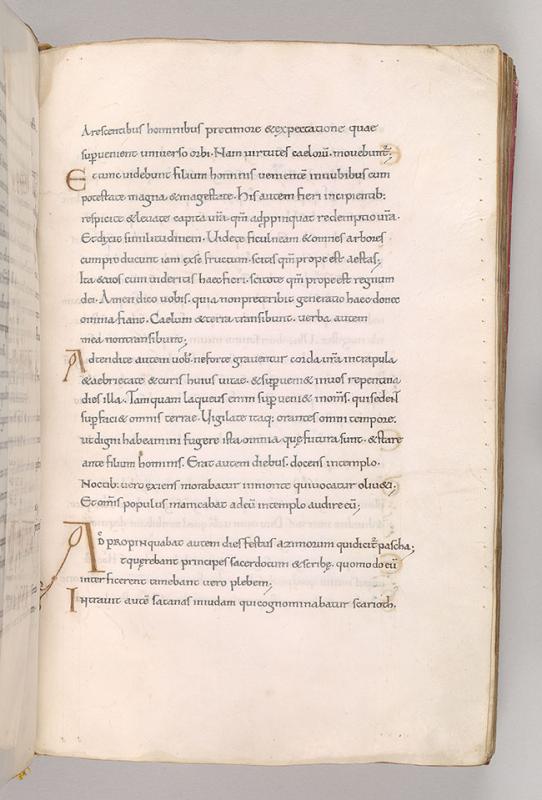 Arescentibus hominibus pretimore &expectatione quae
supuenient universo orbi. Nam virtutes caeloru movebunt;
Et tunc videbunt filium hominis veniente innubibus cum
potestate magna &magestate. His autem fieri incipientib;
respicite &levate capita vra. qm adppinquat redemptio vra.
Etdixit similitudinem. Videte ficulneam &omnes arbores
cumproducunt iam exse fructum. scitis qm prope est aestas;
Ita &vos cum videritis haec fieri. scitote qm prope est regnum
dei. Amen dico vobis. quia nonpreteribit generatio haec donec
omnia fiant. Caelum &terra transibunt. verba autem
mea nontransibunt;
Adtendite autem vob. neforte graventur corda vra incrapula
&aebrietate &curis huius vitae. &supueni& invos repentina
dies illa. Tamquam laqueus enim supveni& inoms. quisedent
supfaci& omnis terrae. Vigilate itaq; orantes omni tempore.
ut digni habeamini fugere ista omnia quę futura sunt. &stare
ante filium hominis. Erat autem diebus. docens intemplo.
Noctib; vero exiens morabatur inmonte quivocatur oliu&i.
Et omis populus manicabat adeu intemplo audire eu;
ADPROPINQUABAT autem dies festus azimorum quidicit pascha;
&querebant principes sacerdotum &scribę. quomodo eu
interficerent timebant vero plebem;
Intravit aute satanas inIudam quicognominabatur scarioth.